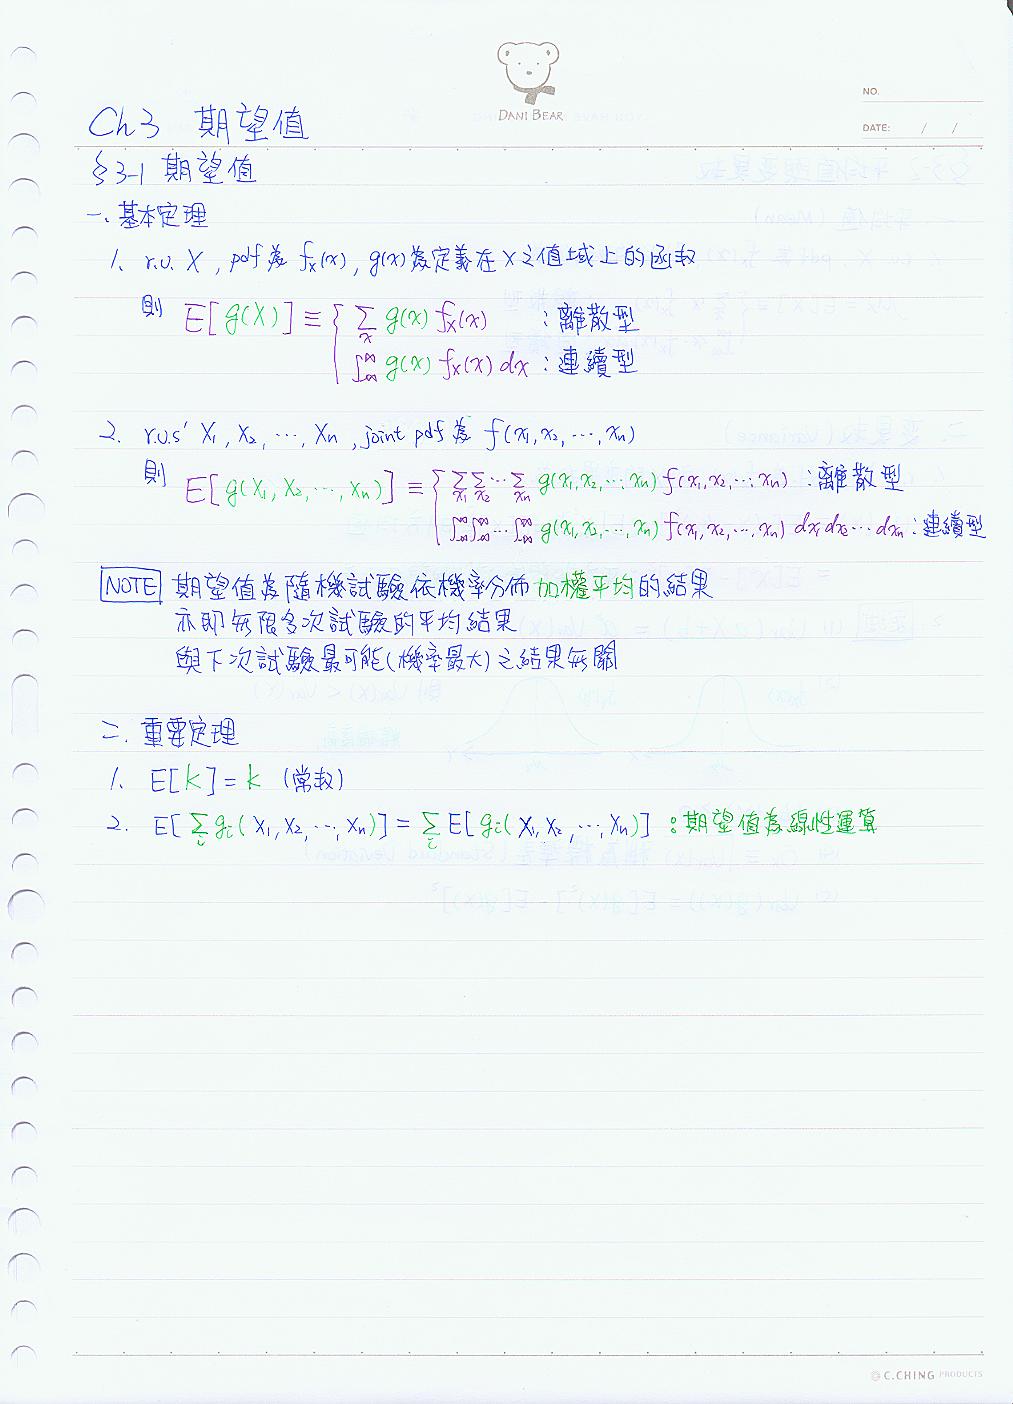 DANI BEAR
NO.
DATE: / /
Ch3 期望值
§3-1 期望值
一. 基本定理
1. r.v. X , pdf 為 fx(x) , g(x) 為定義在 X 之值域上的函數
則 E[g(X)] ≡ { Σx g(x) fx(x) : 離散型
∫-∞^∞ g(x) fx(x) dx : 連續型
2. r.v.s' X1 , X2 , ⋯ , Xn , joint pdf 為 f(x1, x2, ⋯, xn)
則 E[g(X1, X2, ⋯, Xn)] ≡ { Σx1 Σx2 ⋯ Σxn g(x1, x2, ⋯, xn) f(x1, x2, ⋯, xn) : 離散型
∫-∞^∞ ∫-∞^∞ ⋯ ∫-∞^∞ g(x1, x2, ⋯, xn) f(x1, x2, ⋯, xn) dx1 dx2 ⋯ dxn : 連續型
NOTE 期望值為隨機試驗依機率分佈加權平均的結果
亦即無限多次試驗的平均結果
與下次試驗最可能(機率最大)之結果無關
二. 重要定理
1. E[k] = k (常數)
2. E[Σi gi(X1, X2, ⋯, Xn)] = Σi E[gi(X1, X2, ⋯, Xn)] : 期望值為線性運算
C.CHING PRODUCTS